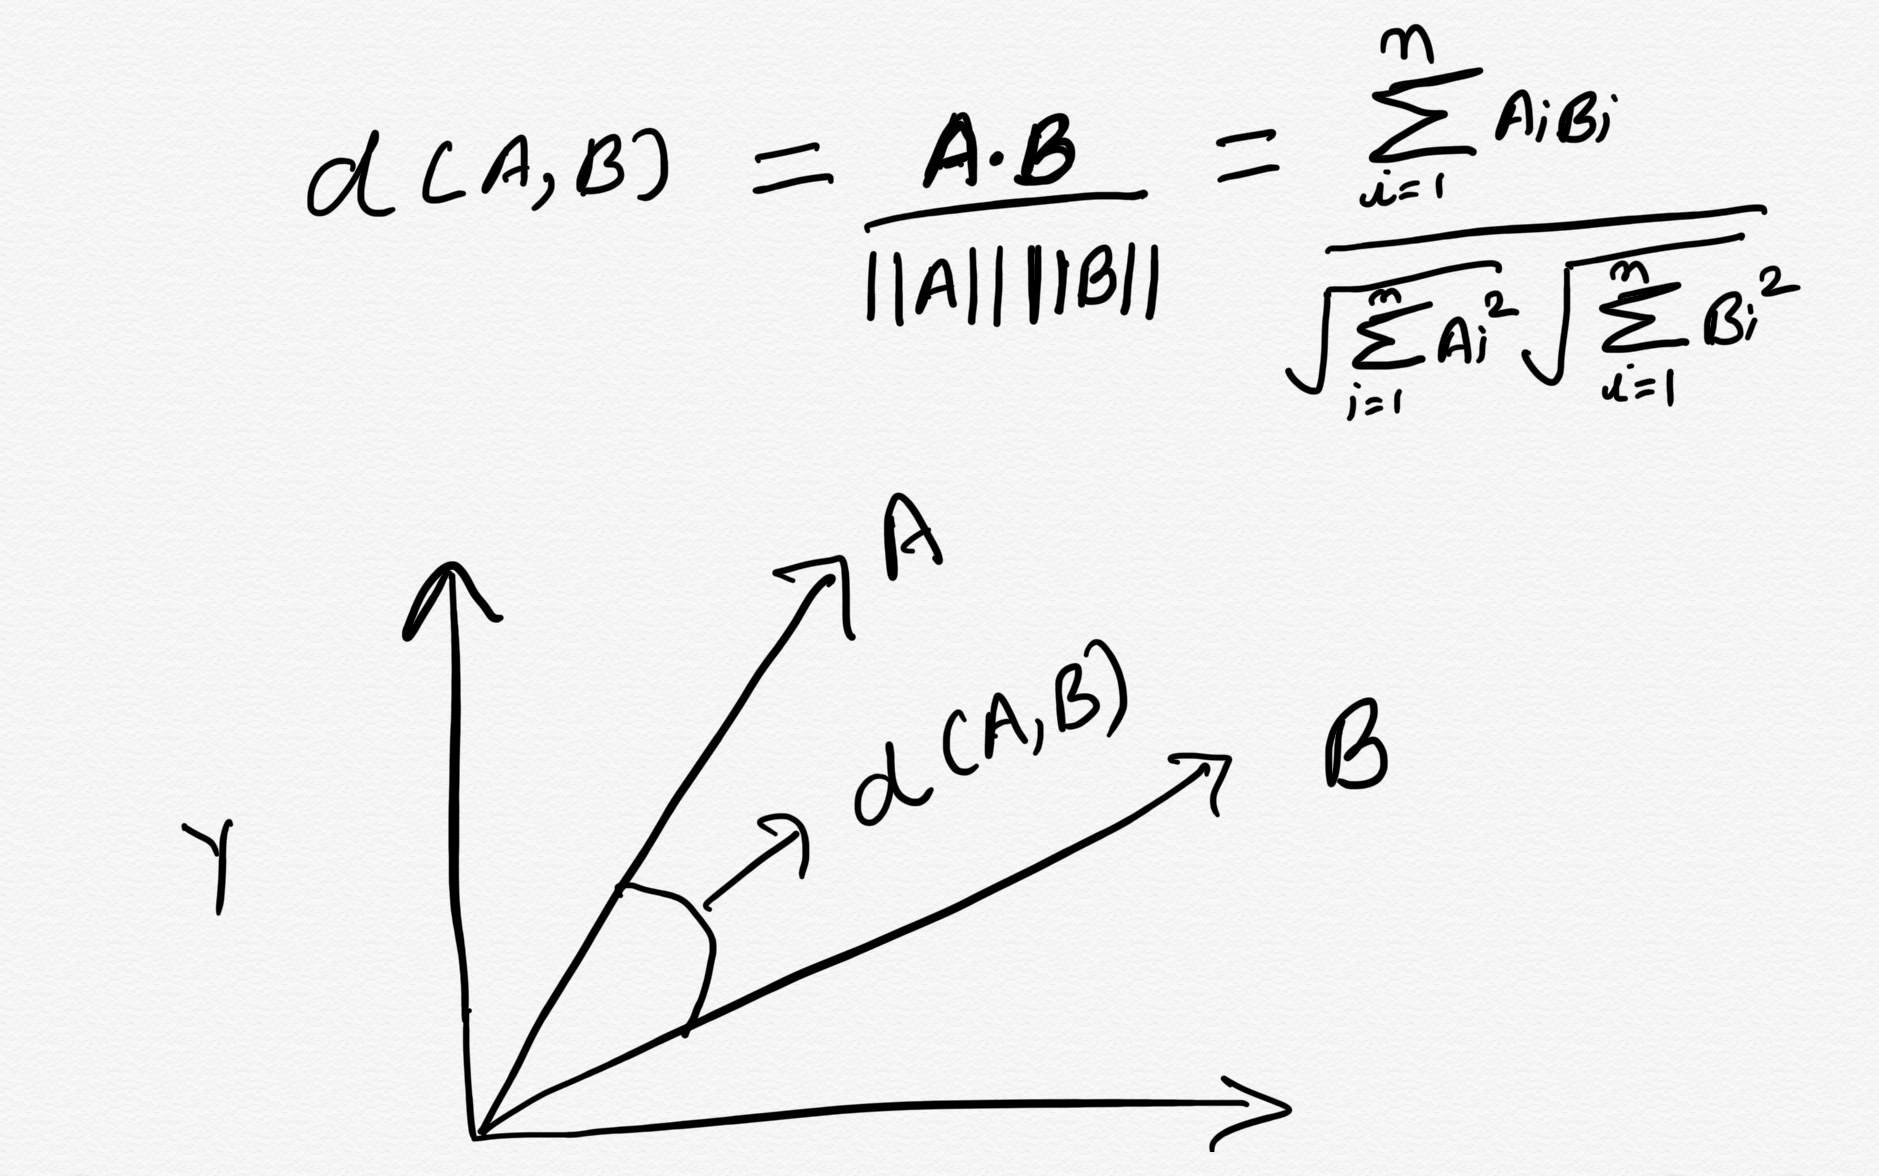 d(A,B) = A·B / ||A|| ||B|| = n∑i=1 AiBi / √n∑i=1 Ai² √n∑i=1 Bi²
A
d(A,B)
B
Y